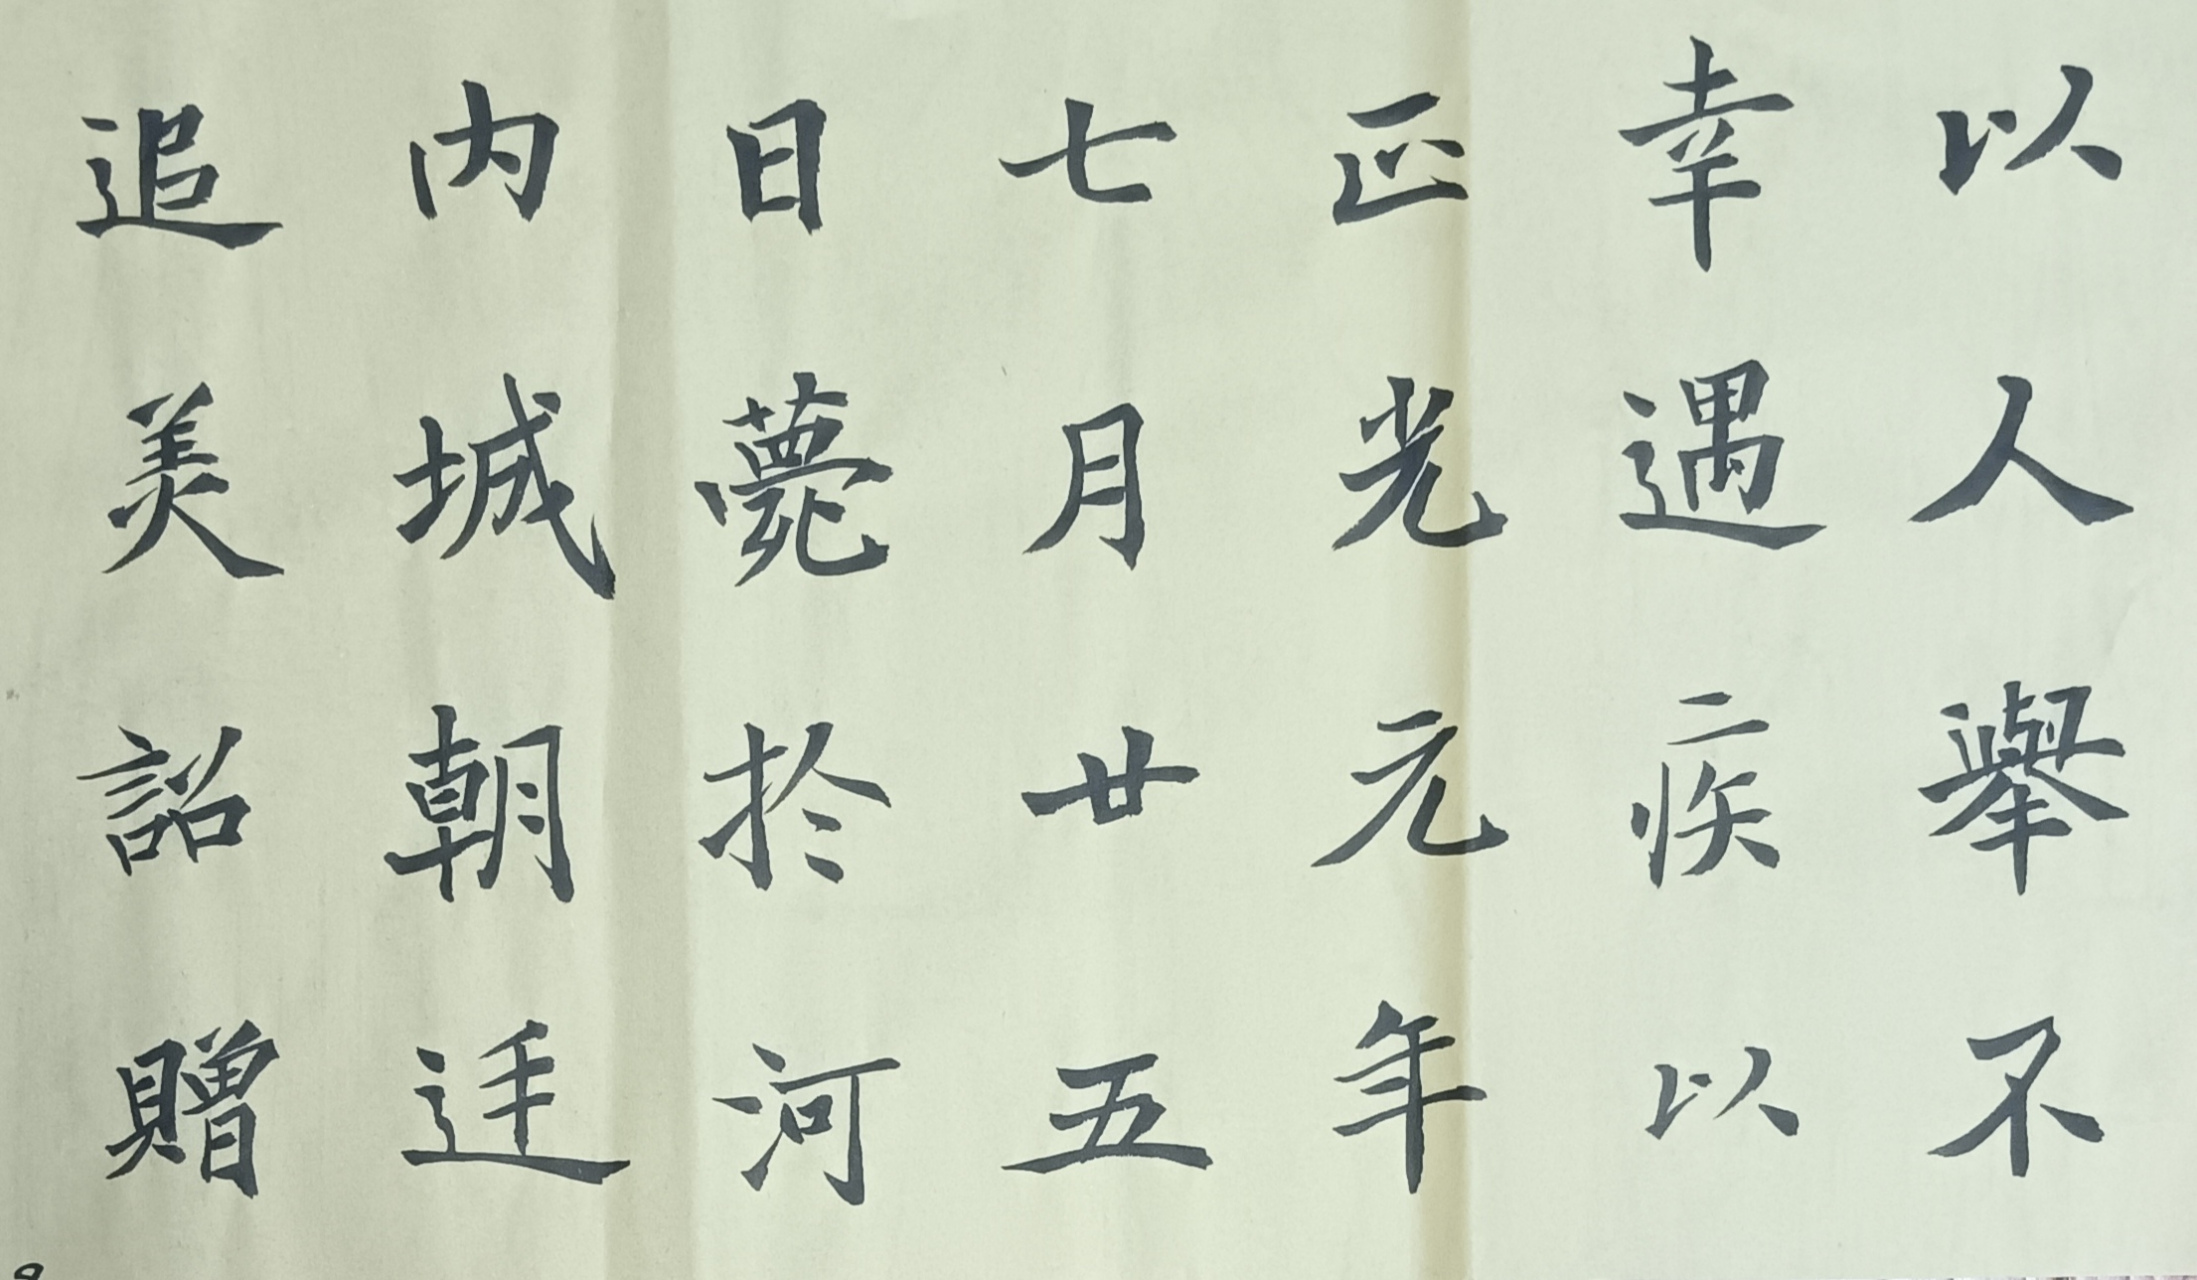 以人舉不
幸遇疾以
正光元年
七月廿五
日薨於河
内城朝迋
追美詔贈